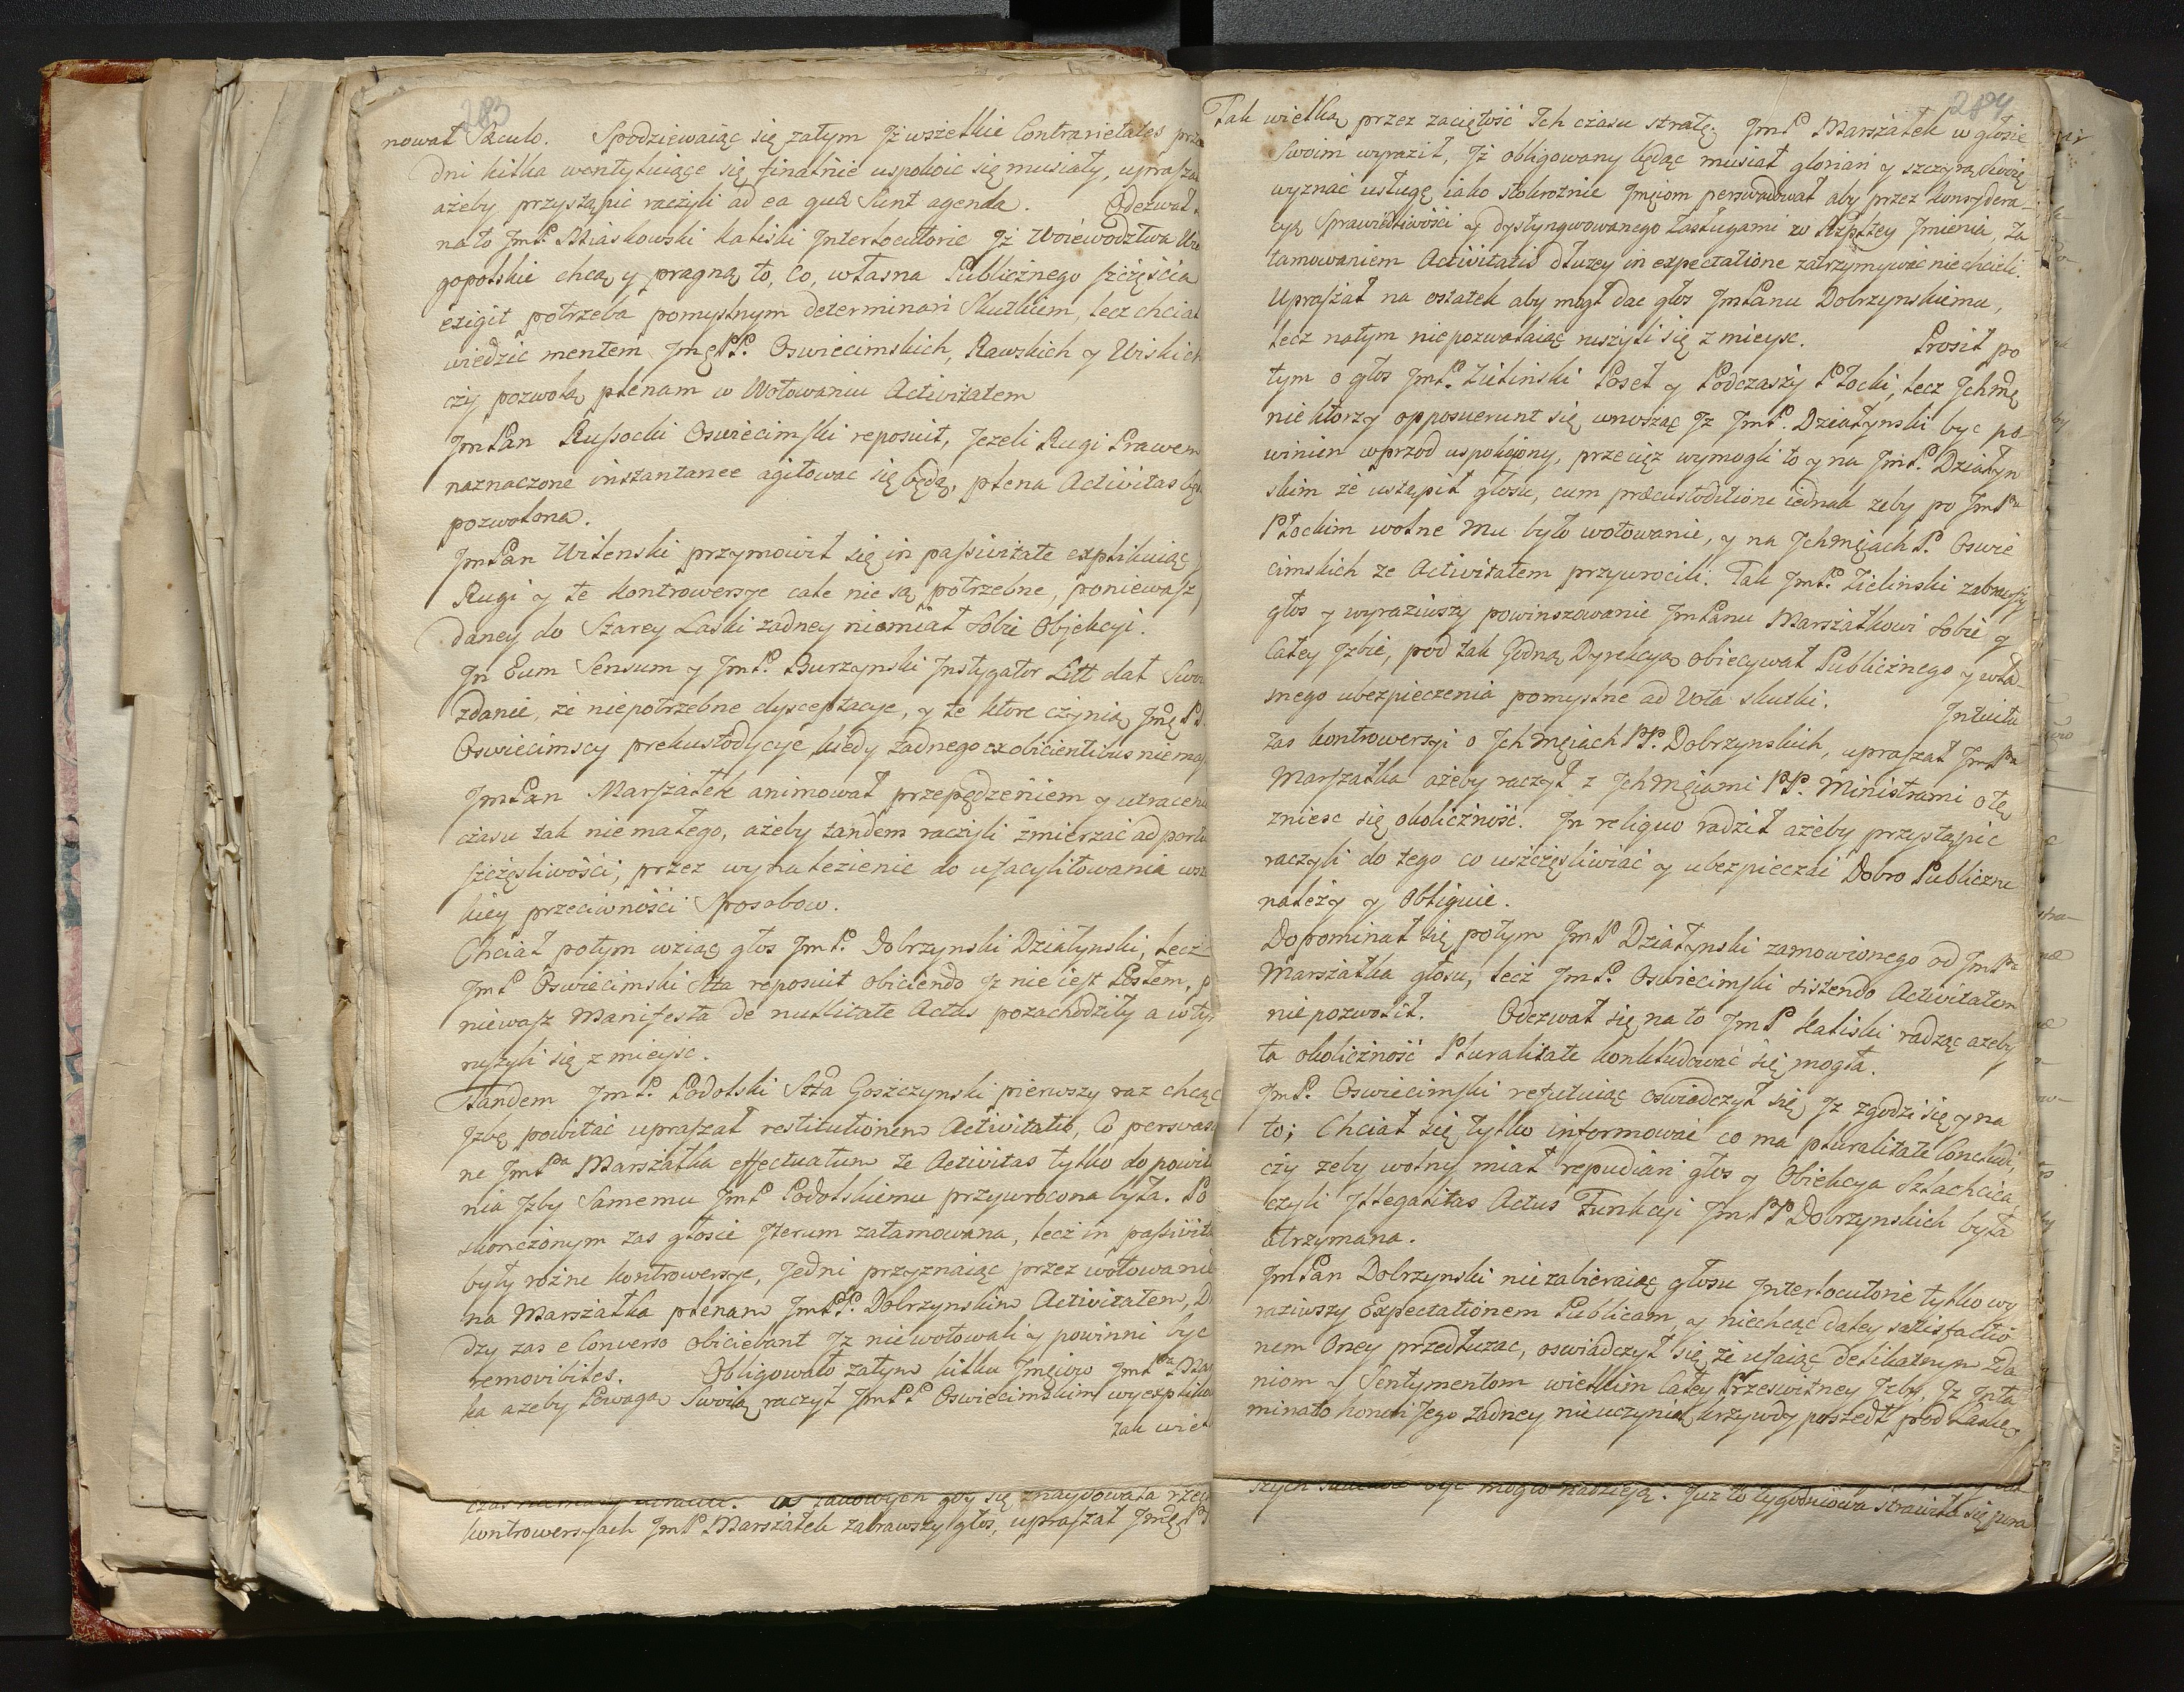 283
nowat Sæculo. Spodziewaiąc się zatym Jż wszetkie Contrarietates
dni kilka wentyluiące się finalnie uspokoic się musiały,
ażeby przystąpic raczyli ad ea quæ Sunt agenda. Odezwał
na to JmP. Miaskowski Kaliski Interlocutorie Jż Woiewodztwa
gopolskie chcą y pragną to, co, własna Publicznego szczęścia
exigit potrzeba pomyslnym determinari Skutkiem, lecz chciał
wiedzic mentem JmęPP. Oswiecimskich, Rawskich y Wiskich
czy pozwolą plenam w Wotowaniu Activitatem
JmPan Russocki Oswiecimski reposuit, Jezeli Rugi Prawem
naznaczone instantanee agitowac się będą, plena Activitas
pozwolona.
JmPan Wilenski przymowił się in passivitate explikuiąc
Rugi y te kontrowersye cale nie są potrzebne, poniewasz
daney do Starey Laski zadney niemiał sobie Objekcyi.
In Eum Sensum y JmP. Burzynski Instygator Litt dał
zdanie, że niepotrzebne dysceptacye, y te ktore czynią Jmę
Oswiecimscy prekustodycye, kiedy żadnego ex obicientibus
JmPan Marszałek animował przepędzeniem y
czasu tak niemałego, ażeby tandem raczyli zmierzać ad
szczęsliwości, przez wynalezienie do ufacylitowania
kiey przeciwności Sposobow.
Chciał potym wziąc głos JmP. Dobrzynski Działynski, lecz
JmP Oswiecimski Stta reposuit obiciendo Jż nie iest Posłem,
niewasz Manifesta de nullitate Actus pozachodziły
ruszyli się z mieysc.
Tandem JmP. Podolski Stta Goszczynski pierwszy raz chcąc
Jzbę powitać upraszał restitutionem Activitatis, Co
ne JmPa Marszałka effectuatum że Activitas tylko do
nia Jzby Samemu JmP Podolskiemu przywrocona była. Po
skończonym zas głosie Iterum zatamowana, lecz in
były rożne kontrowersye, Jedni przyznaiąc przez wotowanie
na Marszałka plenam JmPP. Dobrzynskim Activitatem,
dzy zas e Converso obiciebant Jż niewotowali y powinni byc
removibiles. Obligowało zatym kilku Jmęiow JmPa
ka ażeby Powagą Swoią raczył JmPP Oswiecimskim
tak
kontrowersyach JmP Marszałek zabrawszy głos, upraszał
284
Tak wielką przez zaciętość Ich czasu stratę. JmP Marszałek w głosie
Swoim wyraził, Jż obligowany będąc musiał gloriari y szczyrą Swoię
wyznać usługę iako stokrotnie Jmęiom perswadował aby przez konsydera-
cyą Sprawiedliwości y dystyngwowanego Zasługami w Rzptzey Imienia, Za
tamowaniem Activitatis dłuzey in expectatione zatrzymywac niechcieli.
Upraszał na ostatek aby mogł dac głos JmPanu Dobrzynskiemu,
lecz natym niepozwalaiąc ruszyli się z mieysc. Prosił po
tym o głos JmP. Zielinski Poseł y Podczaszy Płocki, lecz Ichmę
niektorzy opposuerunt się wnosząc Jż JmP. Działynski byc po-
winien wprzod uspokoiony, przeciez wymogli to y na JmP. Działyn
skim że ustąpił głosu, cum præcustoditione iednak zeby po JmPu
Płockim wolne mu było wotowanie, y na Ichmęiach P. Oswie
cimskich ze Activitatem przywrocili. Tak JmP. Zielinski zabrawszy
głos y wyraziwszy powinszowanie JmPanu Marszałkowi Sobie y
Całey Jzbie, pod tak Godną Dyrekcyą obiecywał Publicznego y wła-
snego ubezpieczenia pomyslne ad Vota skutki. Intuitu
zas kontrowersyi o Ichmęiach PP. Dobrzynskich, upraszał JmPa
Marszałka ażeby raczył z Ichmęiami PP. Ministrami o tę
zniesc się okoliczność. In reliquo radził ażeby przystąpic
raczyli do tego co uszczęsliwiać y ubezpieczać Dobro Publiczne
należy y Obliguie.
Dopominał się potym JmP Działynski zamowionego od JmPa
Marszałka głosu, lecz JmP. Oswiecimski sistendo Activitatem
niepozwolił. Odezwał się na to JmP Kaliski radząc ażeby
ta okoliczność Pluralitate konkludować się mogła.
JmP. Oswiecimski refutuiąc oswiadczył się Jż zgodzi się y na
to; Chciał się tylko informować co ma pluralitate Concludi,
czy zeby wolny miał repudiari głos y Obiekcya Szlachcica,
czyli Illegalitas Actus Funkcyi JmPP Dobrzynskich była
utrzymana.
JmPan Dobrzynski niezabieraiąc głosu Interlocutorie tylko wy
raziwszy Expectationem Publicam, y niechcąc daley satisfactio
nem Oney przedłuzac, oswiadczył się, że ufaiąc delikatnym zda
niom y Sentymentom wielkim Całey Przeswitney Jzby, Jż
minato honori Jego żadney nieuczynią krzywdy poszedł pod Laskę
szych byc mogło nadzieją. Już to tygodniowa strawiła się